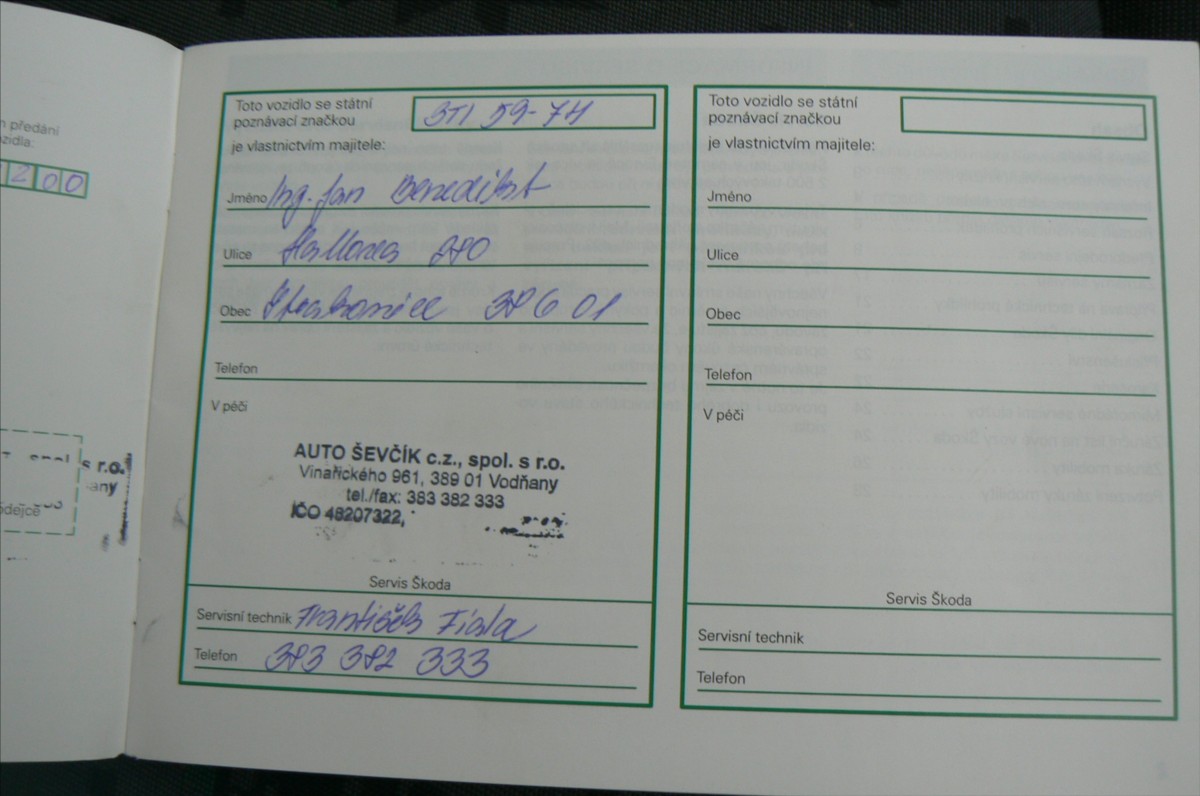 m předání
zidla:
200
s r.o.
any
odejcě
Toto vozidlo se státní
poznávací značkou
STI 59-74
je vlastnictvím majitele:
Jméno Ing. Jan Benedikt
Ulice 280
Obec Strakonice 386 01
Telefon
V péči
AUTO ŠEVČÍK c.z., spol. s r.o.
Vinařického 961, 389 01 Vodňany
tel./fax: 383 382 333
IČO 48207322,
Servis Škoda
Servisní technik František Fiala
Telefon 383 382 333
Toto vozidlo se státní
poznávací značkou
je vlastnictvím majitele:
Jméno
Ulice
Obec
Telefon
V péči
Servis Škoda
Servisní technik
Telefon